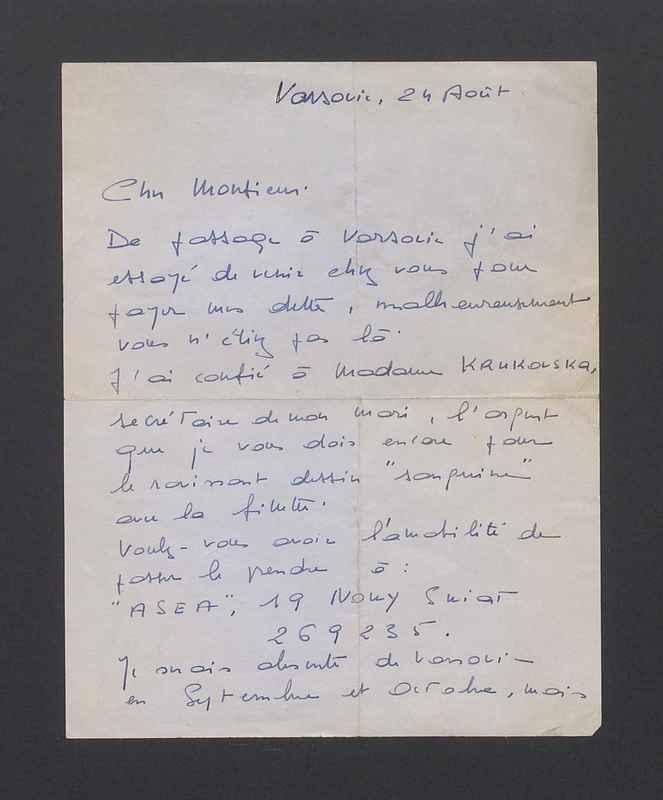 Varsovie, 24 Août
Cher Monsieur.
De passage à Varsovie j'ai
essayé de venir chez vous pour
payer mes dette, malheureusement
vous n'étiez pas là.
J'ai confié à Madame KRUKOVSKA,
secrétaire de mon mari, l'argent
que je vous dois encore pour
le ravissant dessin "sanguine"
avec la fillette.
Voulez-vous avoir l'amabilité de
passer le prendre à :
"ASEA", 19 Nowy Swiat
269235.
Je serais absente de Varsovie
en Septembre et Octobre, mais